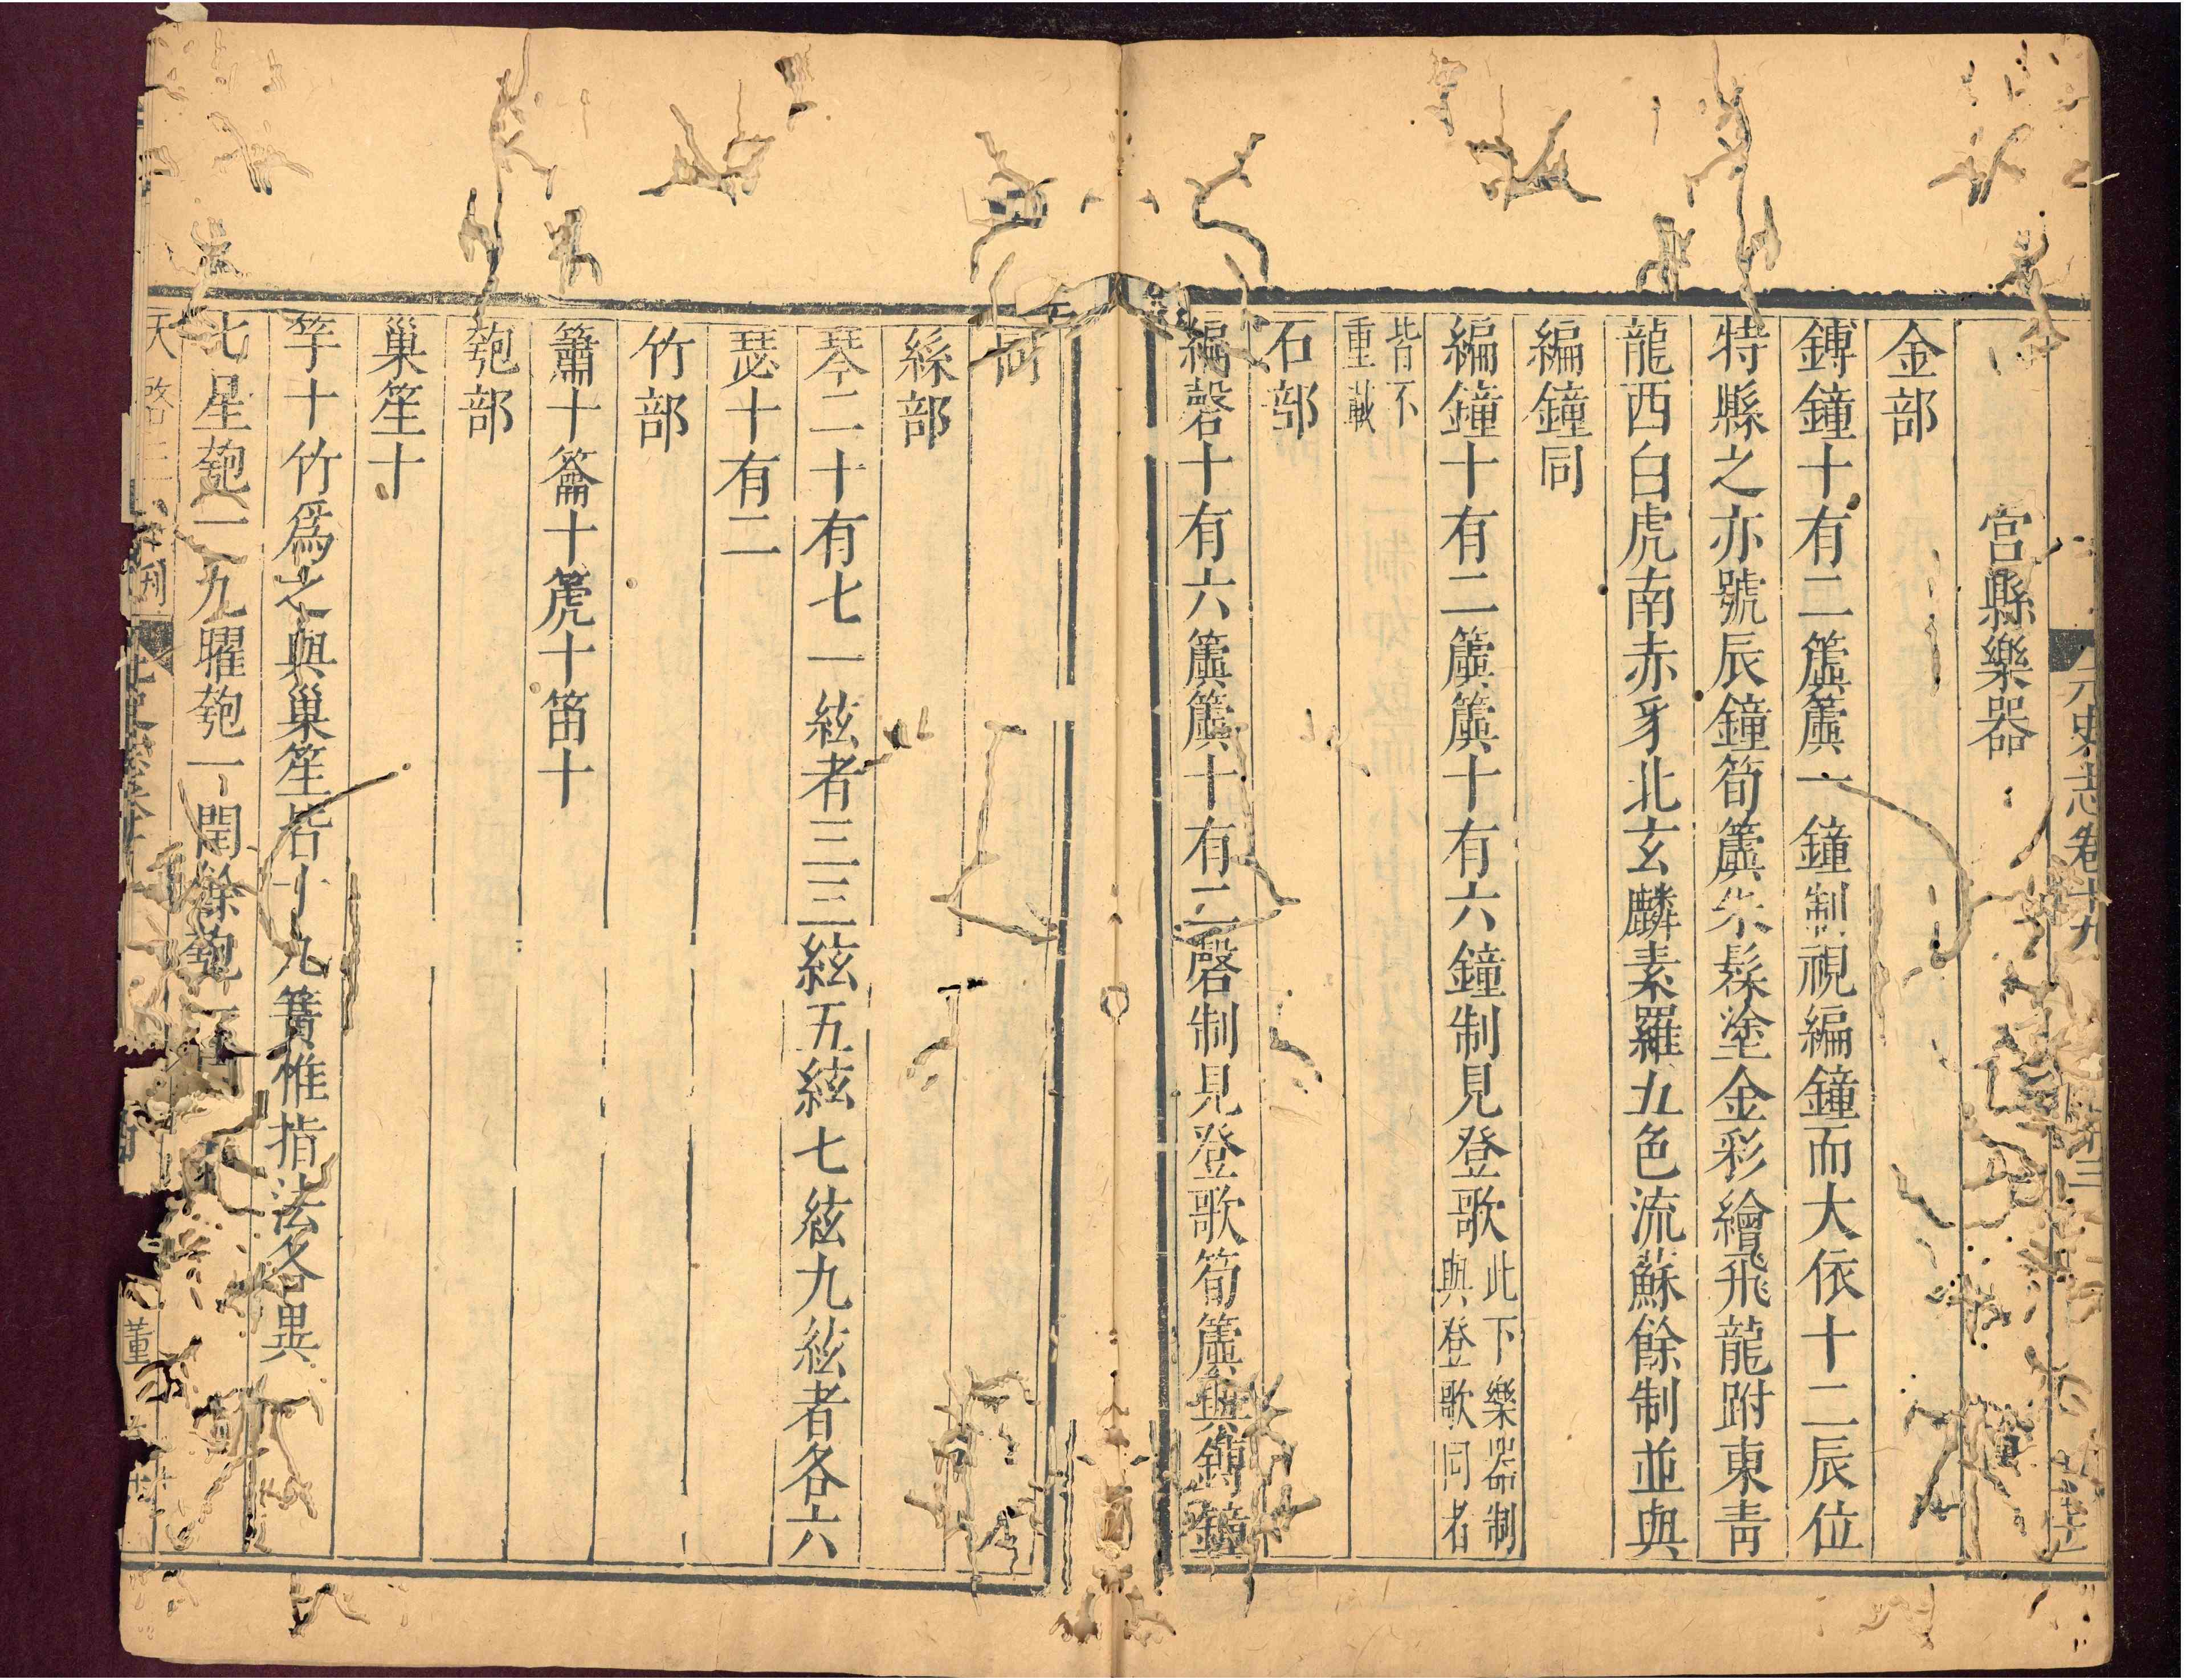 元史志卷十九
宮縣樂器
金部
鎛鐘十有二簴簴一鐘制視編鐘而大依十二辰位
特縣之亦號辰鐘筍簴朱髹塗金彩繪飛龍跗東青
龍西白虎南赤豸北玄麟素羅五色流蘇餘制並與
編鐘同
編鐘十有二簴簴十有六鐘制見登歌此下樂器制
與登歌同者
皆不
重載
石部
編磬十有六簴簴十有二磬制見登歌筍簴與鎛鐘
同
絲部
琴二十有七一絃者三三絃五絃七絃九絃者各六
瑟十有二
竹部
簫十籥十篪十笛十
匏部
巢笙十
竽十竹爲之與巢笙皆十九簧惟指法各異
七星匏一九曜匏一閏餘匏一
天啓三年刊
董